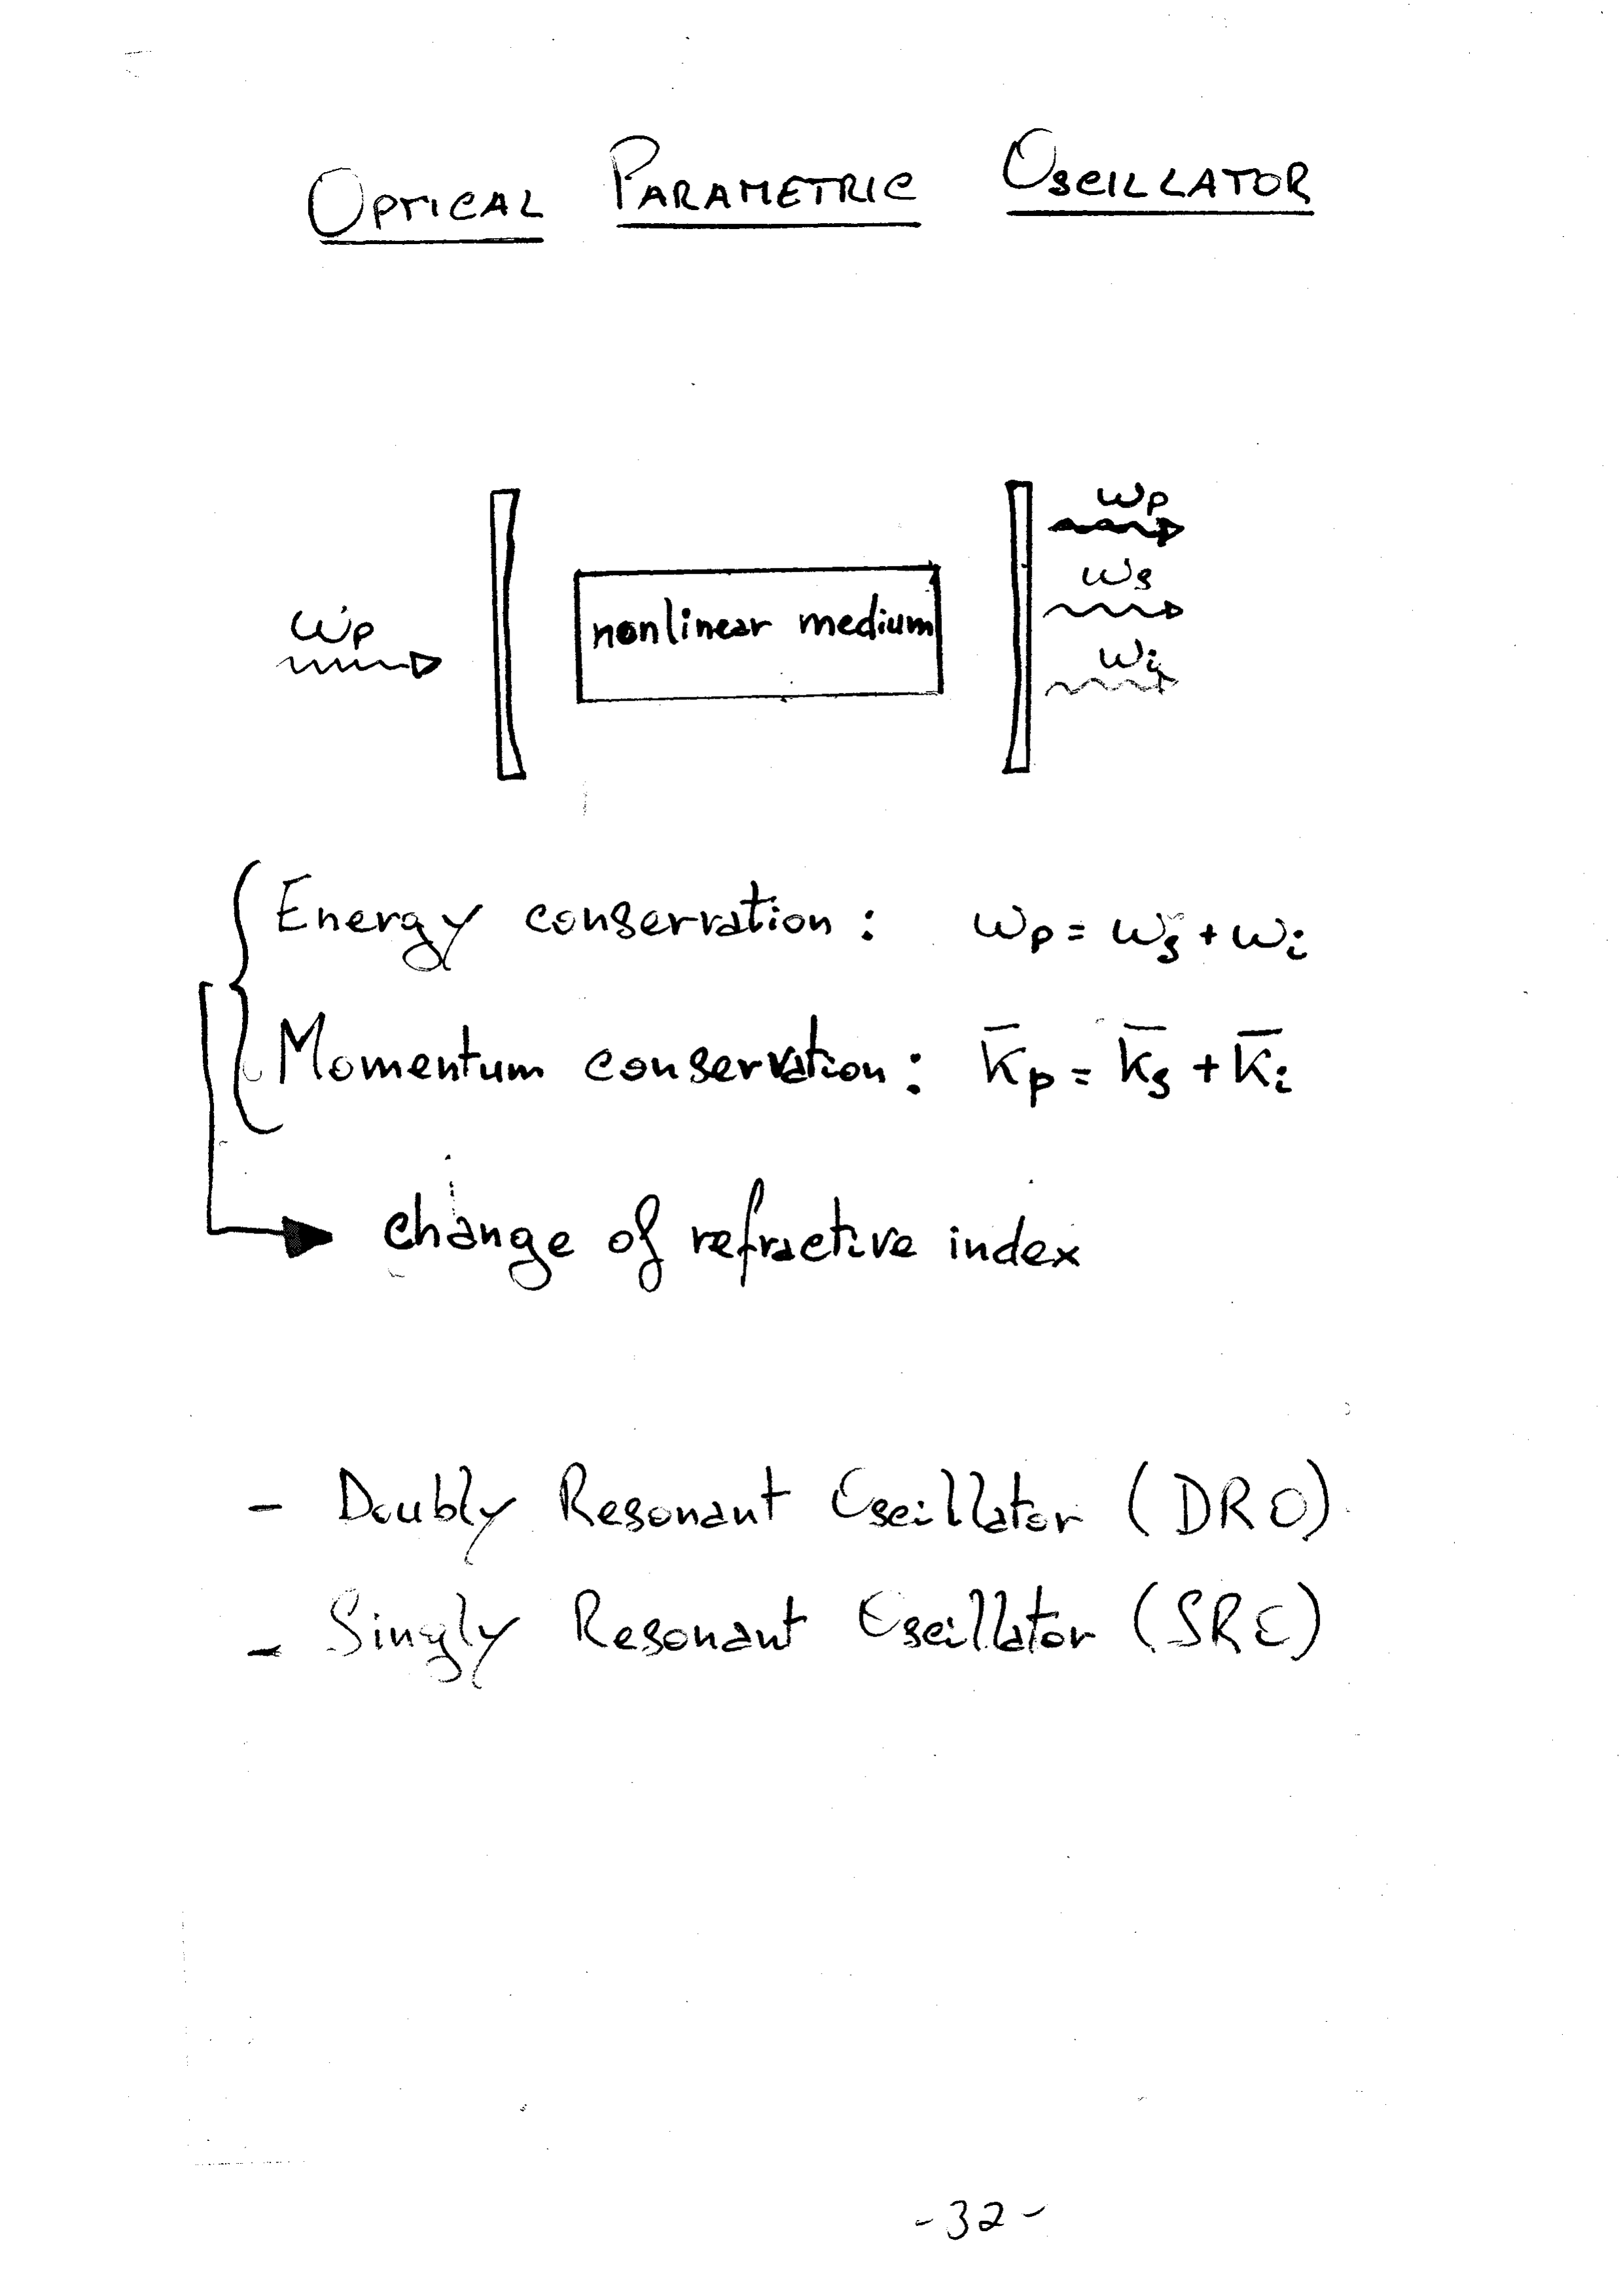 OPTICAL PARAMETRIC OSCILLATOR
ωp
nonlinear medium
ωp
ωs
ωi
Energy conservation : ωp = ωs + ωi
Momentum conservation : k̄p = k̄s + k̄i
change of refractive index
- Doubly Resonant Oscillator (DRO)
- Singly Resonant Oscillator (SRO)
-32-